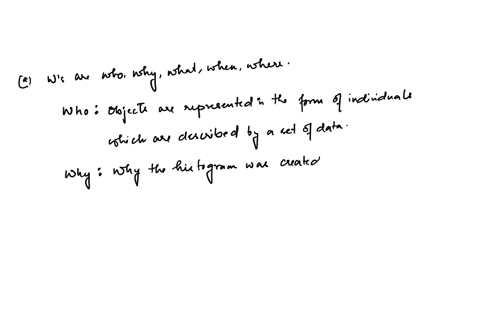 (a) W's are who, why, what, when, where.
Who : Objects are represented in the form of individuals
which are described by a set of data.
Why : Why the histogram was created